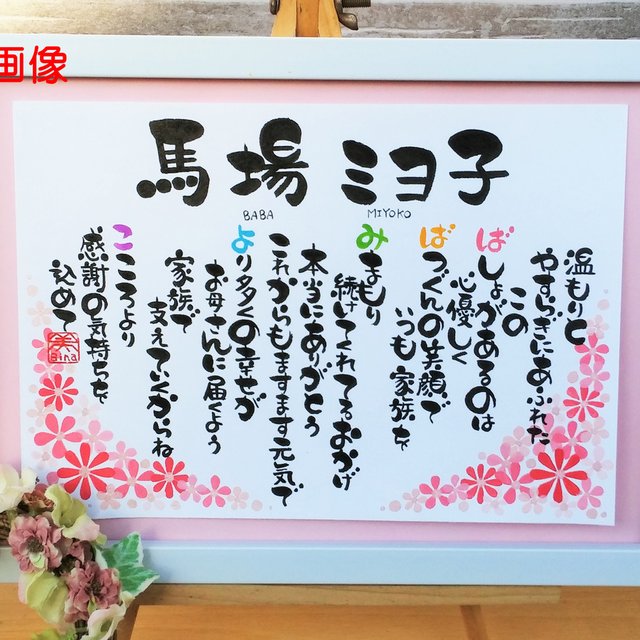 画像
馬場 ミヨ子
BABA
MIYOKO
温もりと
やすらぎにあふれた
この
ばしょがあるのは
心優しく
ばつぐんの笑顔で
いつも家族を
みまもり
続けてくれてるおかげ
本当にありがとう
これからもますます元気で
より多くの幸せが
お母さんに届くよう
家族で
支えていくからね
こころより
感謝の気持ちを
込めて
美
Bina